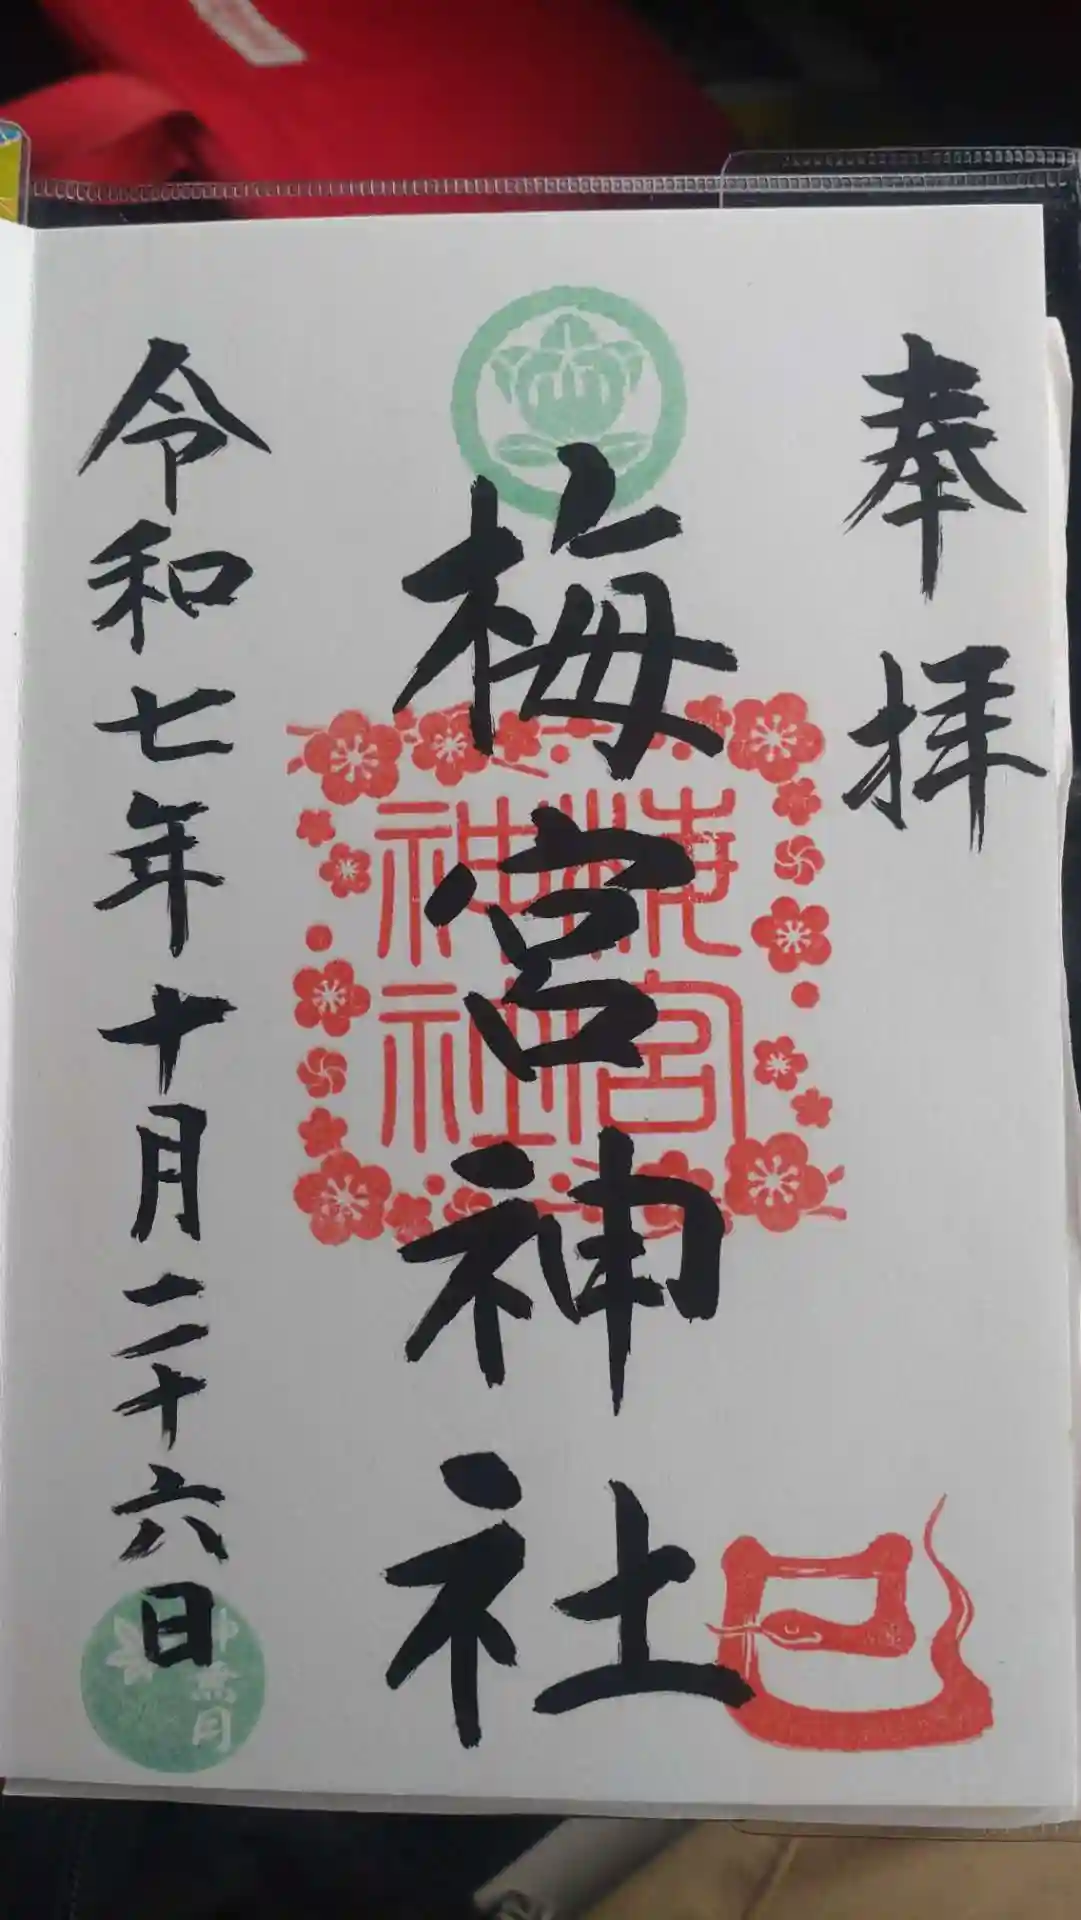 奉拝
梅宮神社
梅宮
神社
巳
令和七年十月二十六日
神無月